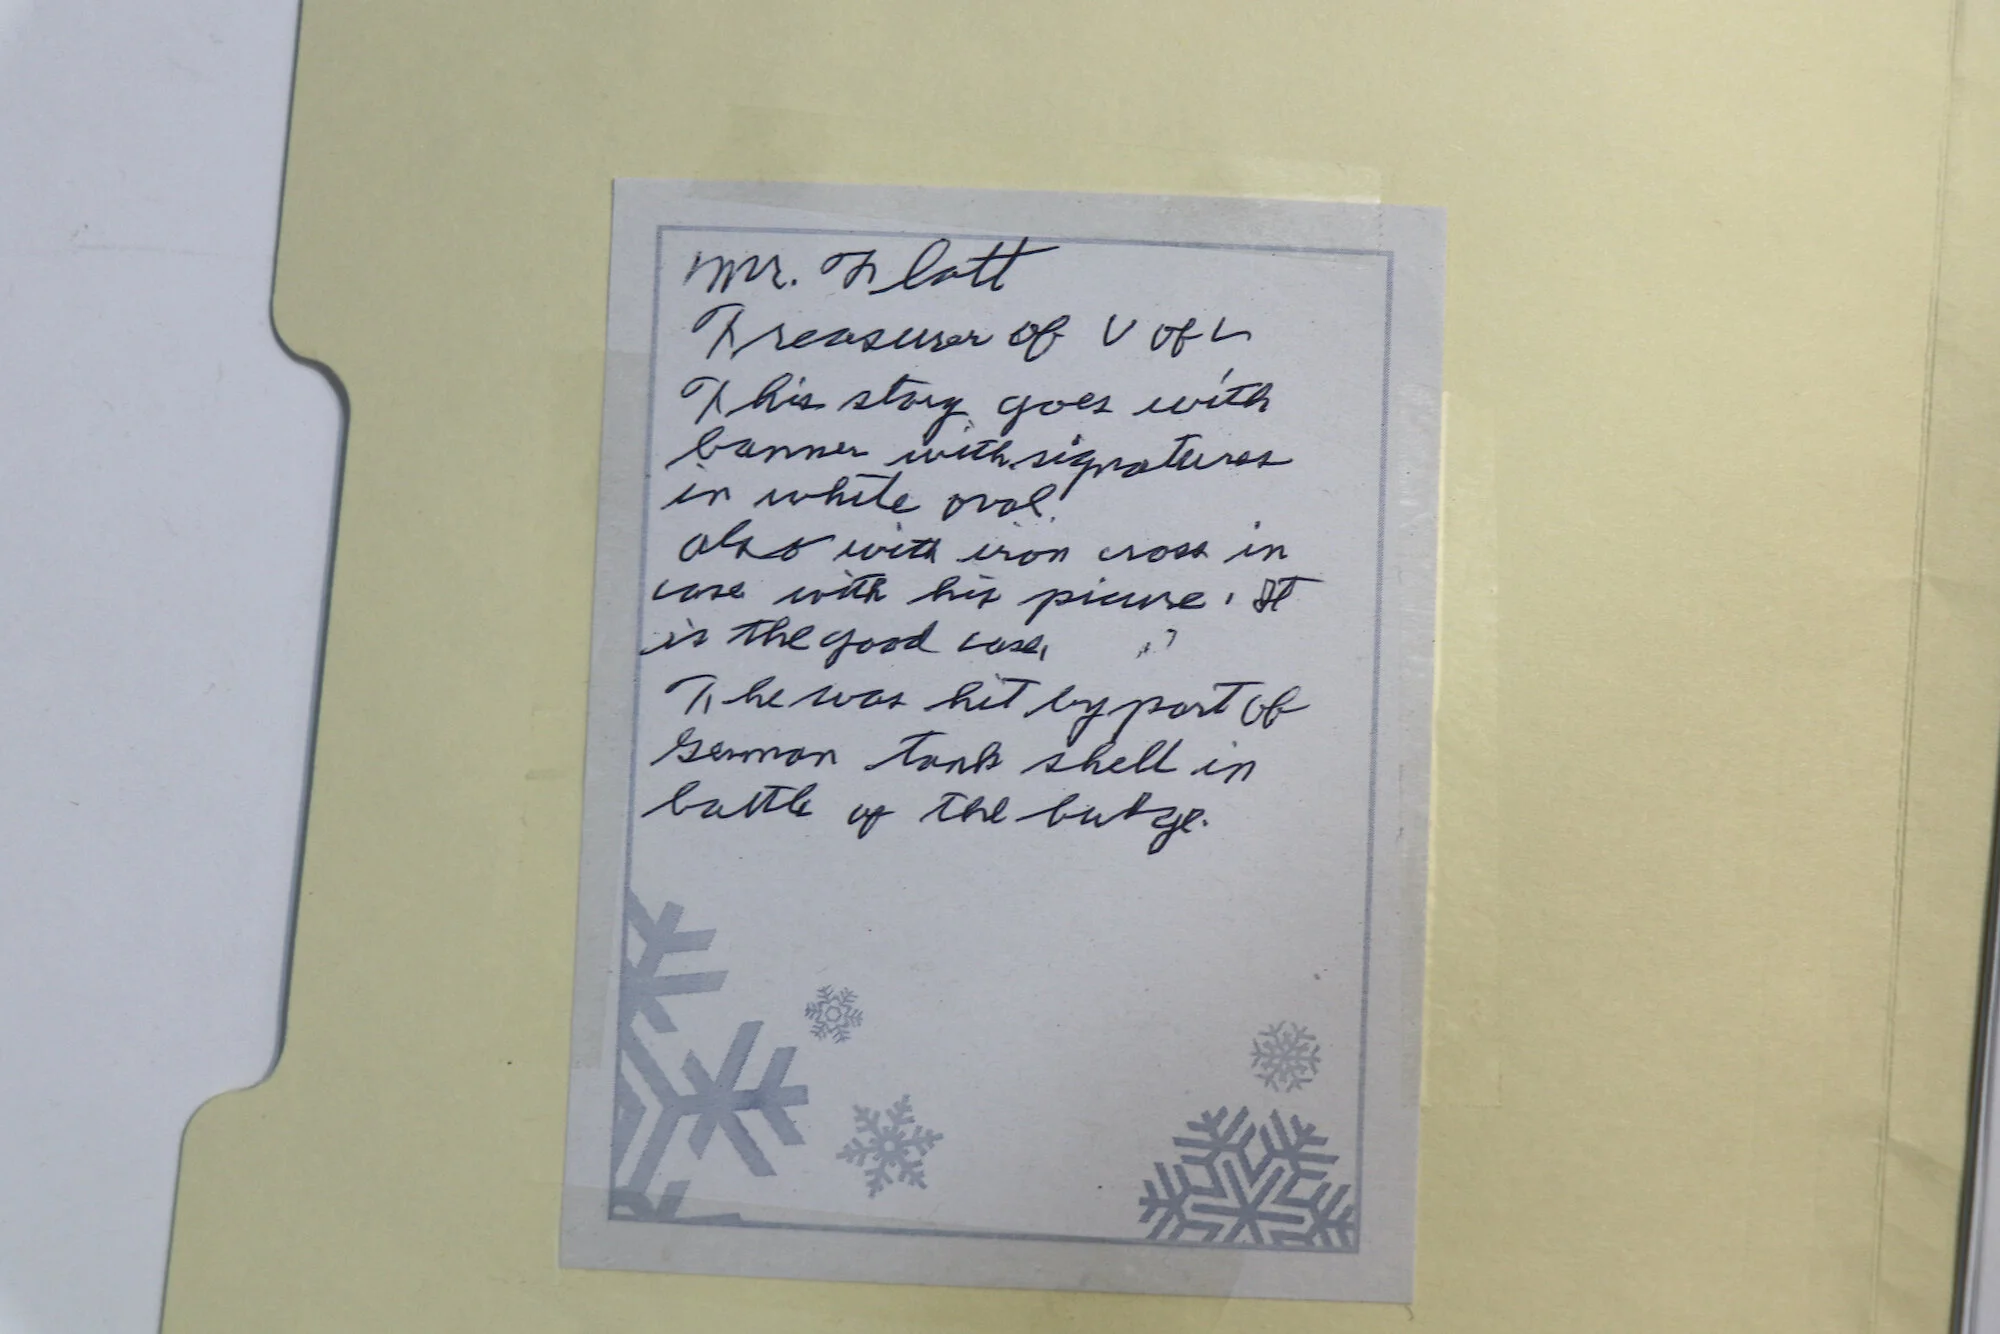 Mr. Flatt
Treasurer of U of L
This story goes with
banner with signatures
in white oval.
also with iron cross in
case with his picure. It
is the good case.
The was hit by part of
German tank shell in
battle of the bulge.